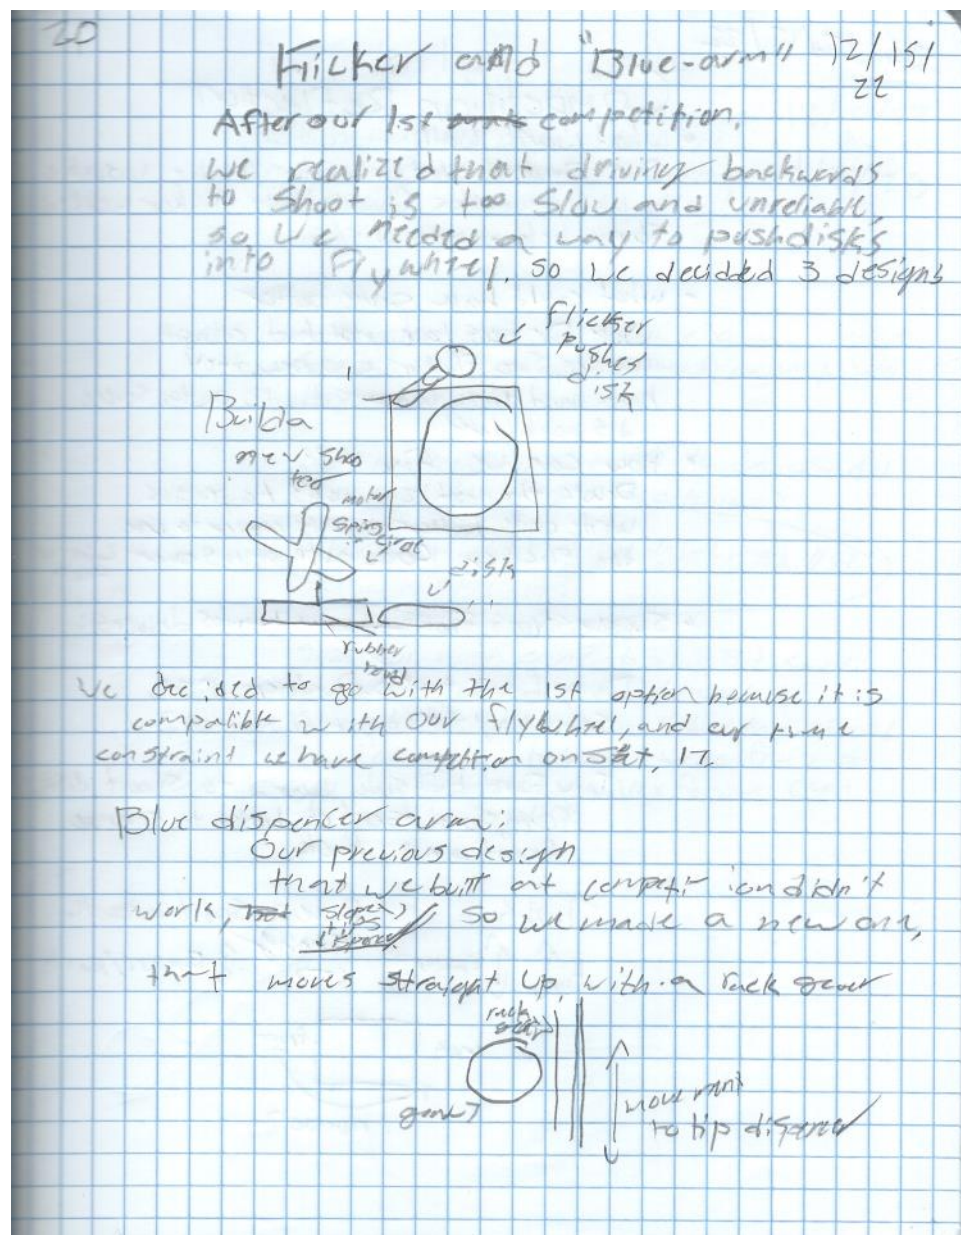 20
Flicker and "Blue-arm" 12/15/
22
After our 1st competition,
we realized that driving backwards
to shoot is too slow and unreliable,
so we needed a way to push disks
into Flywheel. so we decided 3 designs
flicker
pushes
disk
Build a
new shoo
ter
motor
spins
circle
disk
rubber
band
We decided to go with the 1st option because it is
compatible with our flywheel, and our time
constraint we have competition on Sat, 17.
Blue dispencer arm:
Our previous design
that we built at competition didn't
work, so we made a new one,
that moves straight up with a rack gear
rack
gear
movement
to tip dispencer